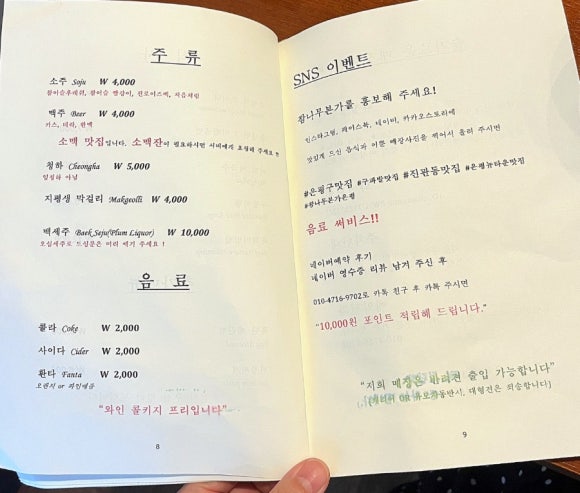 주 류
소주 Soju ₩ 4,000
참이슬후레쉬, 참이슬 빨강이, 진로이즈백, 처음처럼
맥주 Beer ₩ 4,000
카스, 테라, 한맥
소맥 맛집입니다. 소맥잔이 필요하시면 서버에게 요청해 주세요 !!
청하 Cheongha ₩ 5,000
일컬하 아님
지평생 막걸리 Makgeolli ₩ 4,000
백세주 BaekSeju(Plum Liquor) ₩ 10,000
오십세주로 드실분은 미리 얘기 주세요 !
음 료
콜라 Coke ₩ 2,000
사이다 Cider ₩ 2,000
환타 Fanta ₩ 2,000
오렌지 or 파인애플
"와인 콜키지 프리입니다"
8
SNS 이벤트
참나무본가를 홍보해 주세요!
인스타그램, 페이스북, 네이버, 카카오스토리에
맛있게 드신 음식과 이쁜 매장사진을 찍어서 올려 주시면
#은평구맛집 #구파발맛집 #진관동맛집 #은평뉴타운맛집
#참나무본가은평
음료 써비스!!
네이버예약 후기
네이버 영수증 리뷰 남겨 주신 후
010-4716-9702로 카톡 친구 후 카톡 주시면
"10,000원 포인트 적립해 드립니다."
"저희 매장은 반려견 출입 가능합니다"
OR 유모차동반시, 대형견은 죄송합니다)
9